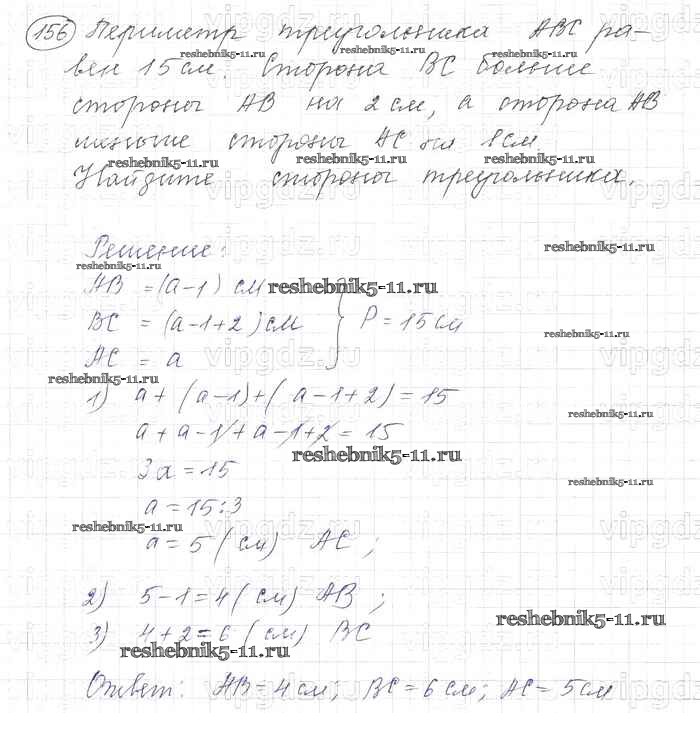 156 Периметр треугольника ABC ра-
reshebnik5-11.ru reshebnik5-11.ru reshebnik5-11.ru
вен 15см. Сторона BC больше
стороны AB на 2см, а сторона AB
меньше стороны AC на 1см
reshebnik5-11.ru reshebnik5-11.ru reshebnik5-11.ru
Найдите стороны треугольника.
Решение:
reshebnik5-11.ru
reshebnik5-11.ru
AB = (a-1) см
reshebnik5-11.ru
BC = (a-1+2) см P = 15см
reshebnik5-11.ru
AC = a
reshebnik5-11.ru
1) a + (a-1)+( a-1+2)=15
reshebnik5-11.ru
a + a-1+a-1+2 = 15
reshebnik5-11.ru
3a = 15
reshebnik5-11.ru
a = 15:3
reshebnik5-11.ru
a = 5 (см) AC ;
2) 5-1=4 (см) AB ;
reshebnik5-11.ru
3) 4+2=6 (см) BC
reshebnik5-11.ru
Ответ: AB=4см; BC=6см; AC=5см